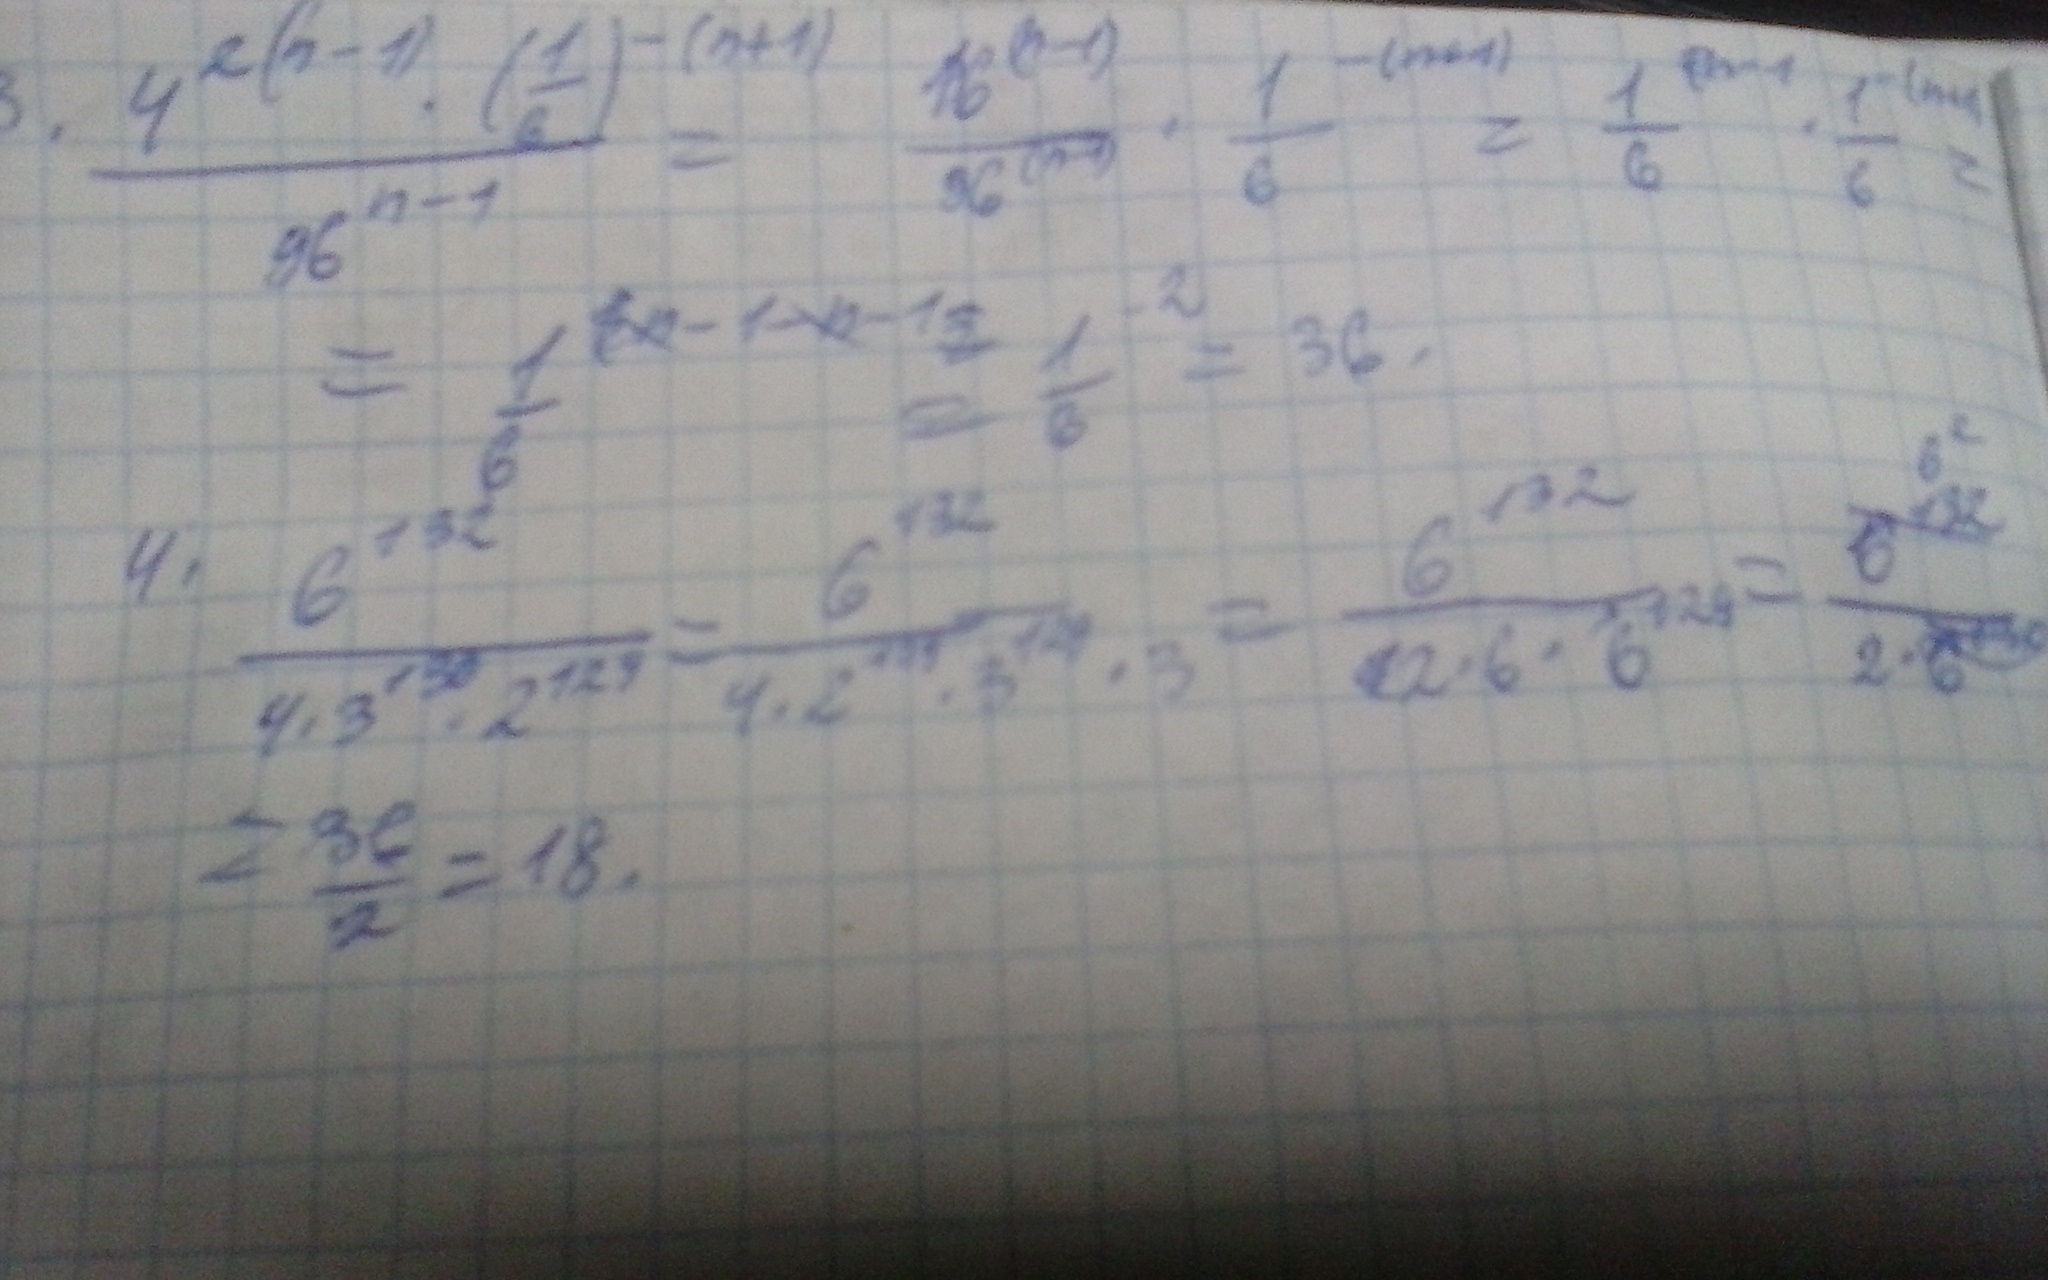 3. (4^{2(n-1)} · (1/6)^{-(n+1)}) / 96^{n-1} = 16^{(n-1)} / 96^{(n-1)} · 1/6^{-(n+1)} = 1/6^{n-1} · 1/6^{-(n+1)} =
= 1/6^{n-1-n-1} = 1/6^{-2} = 36.
4. 6^{132} / (4·3^{130}·2^{129}) = 6^{132} / (4·2^{129}·3^{129}·3) = 6^{132} / (2·6·6^{129}) = 6^{132} 6^2 / (2·6^{130})
= 36/2 = 18.